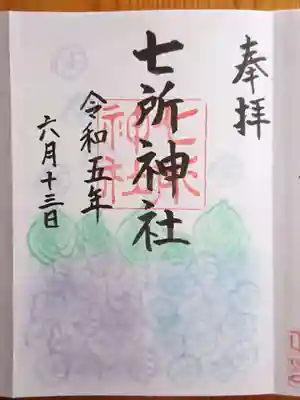 奉拝
七所神社
令和五年
六月十三日
七所
神社